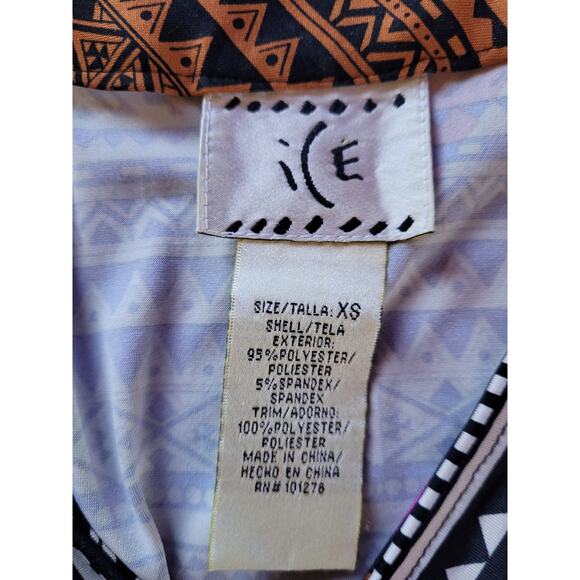 iCE
SIZE/TALLA: XS
SHELL/TELA
EXTERIOR:
95%POLYESTER/
POLIESTER
5%SPANDEX/
SPANDEX
TRIM/ADORNO:
100%POLYESTER/
POLIESTER
MADE IN CHINA/
HECHO EN CHINA
RN# 101278